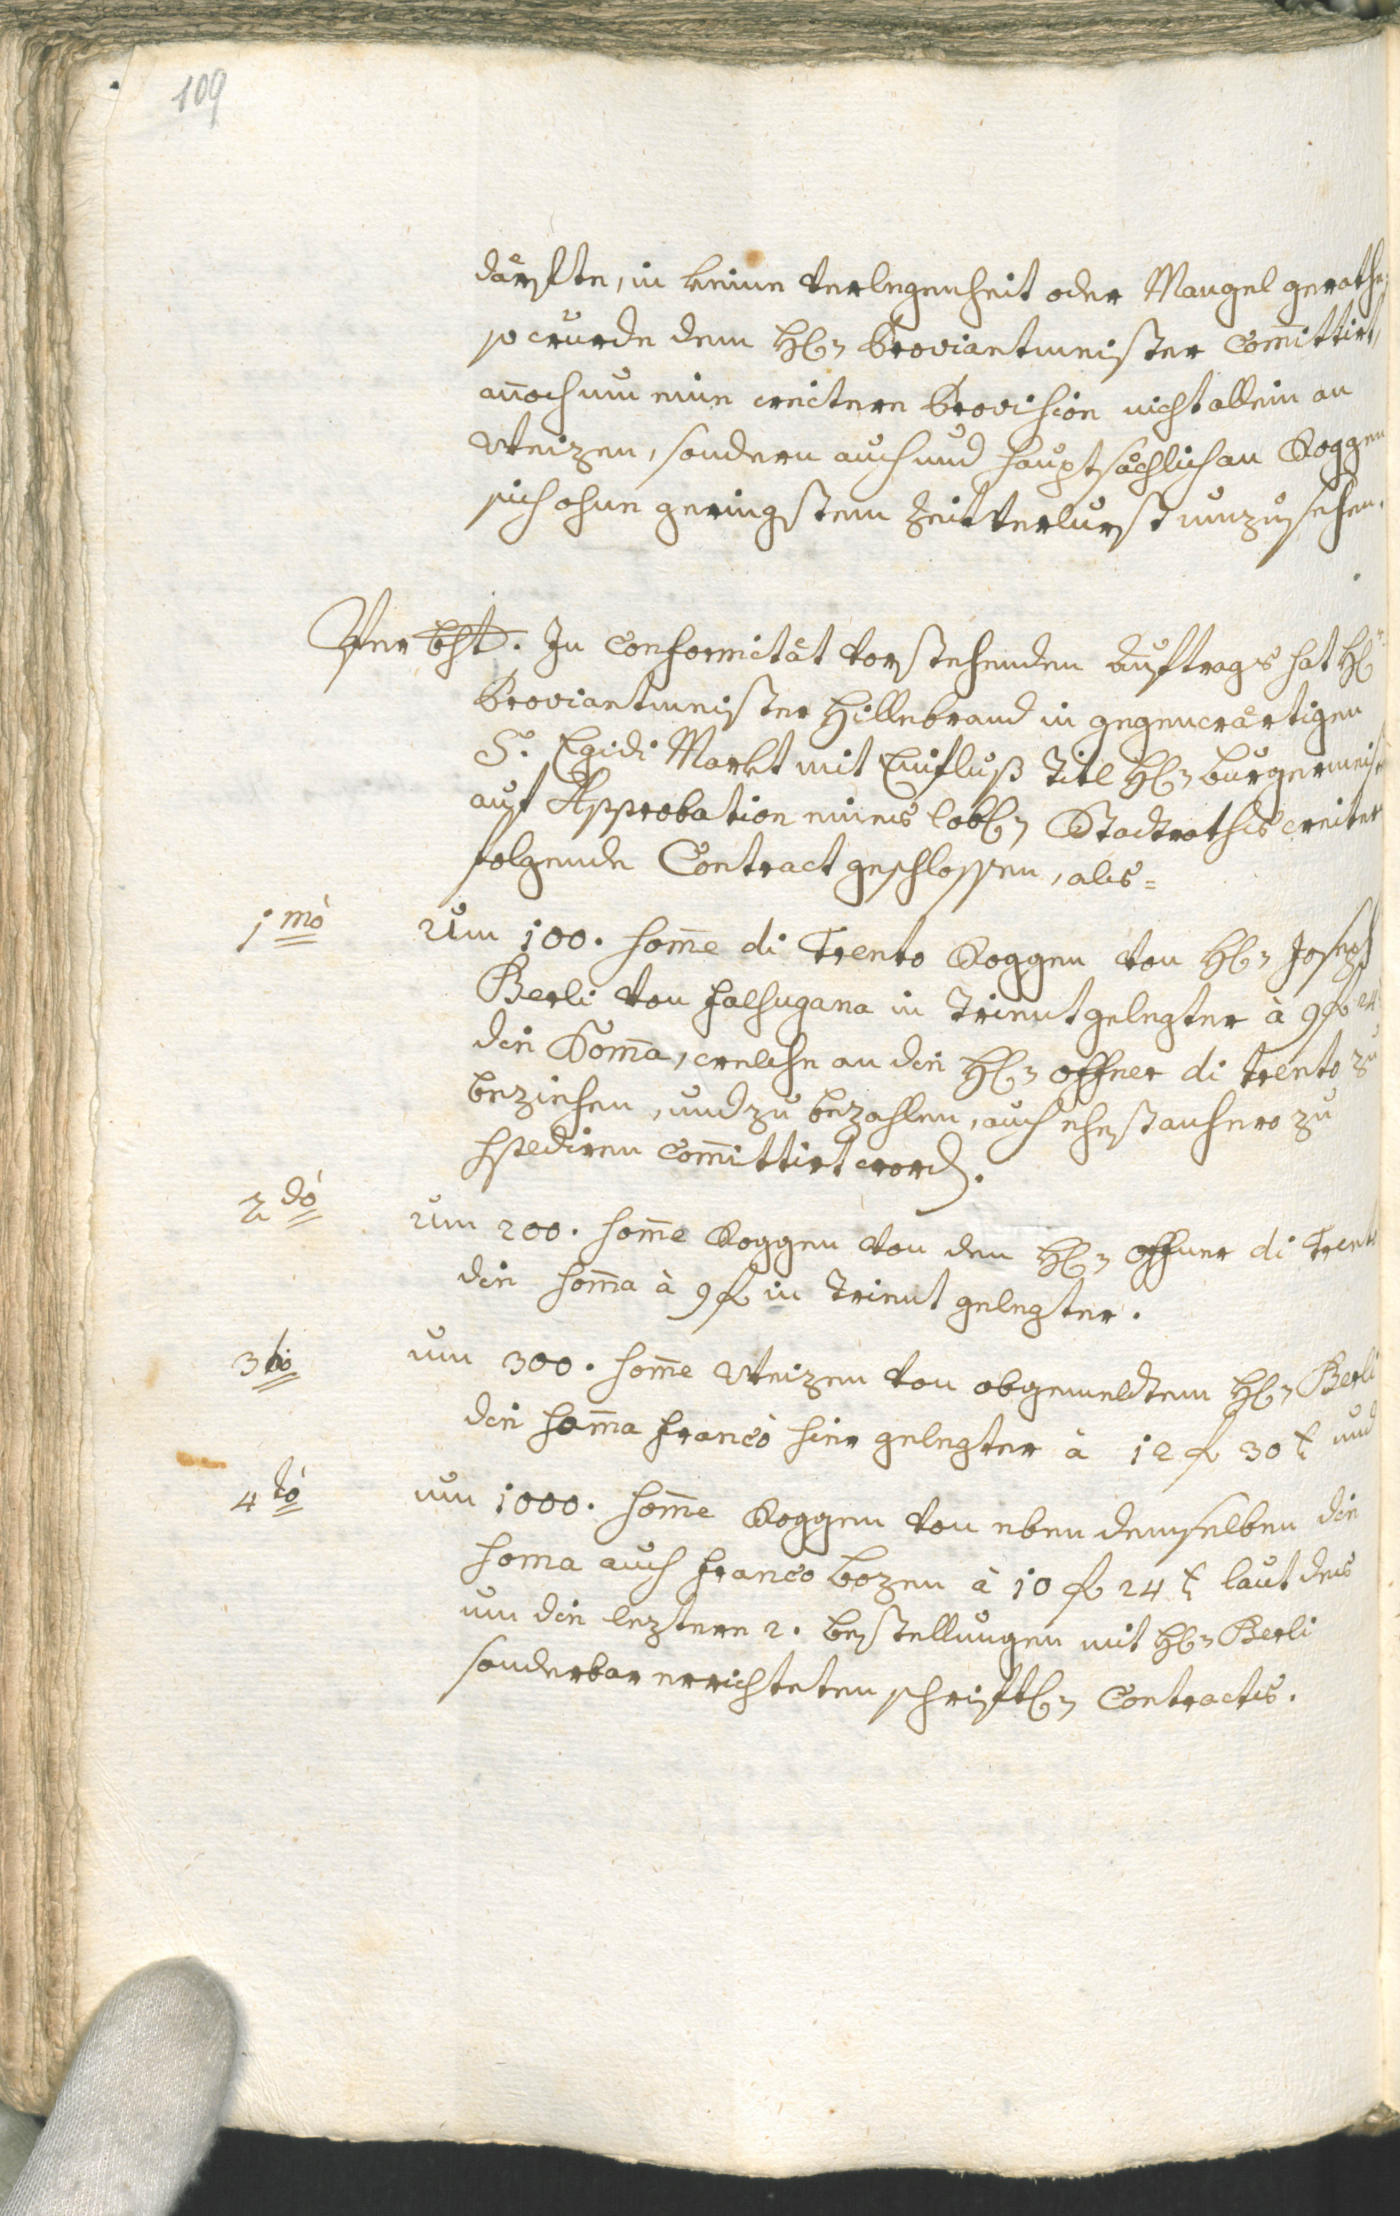 109
därfte, in keine Verlegenheit oder Mangel gerathe
so wurde dem H: Proviantmeister Com̄ittirt,
an̄och um eine weitere Provision nicht allein an
Weizen, sondern auch und hauptsächlich an Roggen
sich ohne geringstem Zeitverlurst umzusehen.
In Conformität vorstehenden Auftrags hat H:
Proviantmeister Hillebrand in gegenwärtigen
S: Egidi Markt mit Einfluß Titl H: Burgermeist
auf Approbation eines lobl: Stadtraths weiter
folgende Contract geschlossen, als=
1mò Um 100. som̄e di Trento Roggen von H: Joseph
Berli von Falsugana in Trient gelegter à 9 f 24
die Som̄a, welche an die H: Offner di Trento zu
beziehen, und zu bezahlen, auch ehest anhero zu
spediren Com̄ittirt word:
2dò um 200. som̄e Roggen von den H: Offner di Trento
die som̄a à 9 f in Trient gelegter.
3tiò um 300. som̄e Weizen von obgemeldtem H: Berli
die som̄a francò hier gelegter à 12 f 30 x und
4tò um 1000. som̄e Roggen von eben demselben die
soma auch franco Bozen à 10 f 24 x laut des
um die leztere 2. Bestellungen mit H: Berli
sonderbar errichteten schriftl: Contractes.